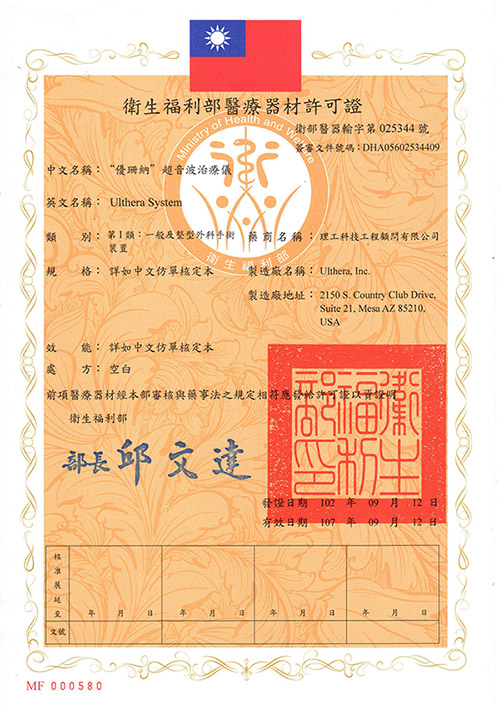 衛生福利部醫療器材許可證
衛部醫器輸字第 025344 號
簽審文件號碼：DHA05602534409
Ministry of Health and Welfare
衛生福利部
中文名稱：“優珊納”超音波治療儀
英文名稱：Ulthera System
類 別：第 I 類：一般及整型外科手術裝置 藥商名稱：理工科技工程顧問有限公司
規 格：詳如中文仿單核定本 製造廠名稱：Ulthera, Inc.
製造廠地址：2150 S. Country Club Drive,
Suite 21, Mesa AZ 85210,
USA
效 能：詳如中文仿單核定本
處 方：空白
前項醫療器材經本部審核與藥事法之規定相符應發給許可證以資證明
衛生福利部
部長 邱文達
衛生福利部印
發證日期 102 年 09 月 12 日
有效日期 107 年 09 月 12 日
核准展延至 年 月 日 年 月 日 年 月 日 年 月 日
文號
MF 000580